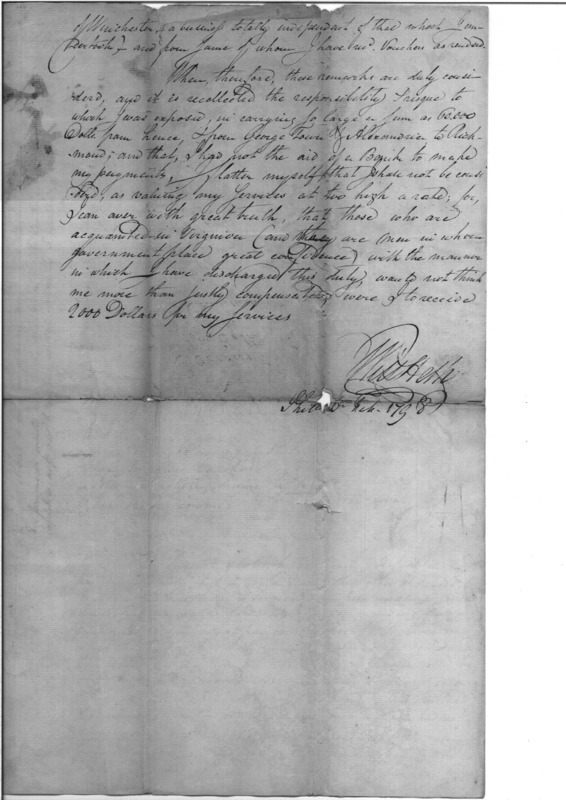 of Winchester, a business totally independant of that which I
and from some of whom I have Vouchers as rendered.
When, therefore, these remarks are duly consi-
dered, and it is recollected the responsibility & risque to
which I was exposed, in carrying so large a sum as 60,000
Dolls. from hence, & from George Town & Alexandria to Rich-
mond; and that, I had not the aid of a Bank to make
my payments, I flatter myself that I shall not be consi-
der'd, as valuing my Services at too high a rate; for,
I can aver with great truth, that those who are
acquainted in Virginia (and they are men in whom
government place great confidence) with the manner
in which I have discharged this duty, would not think
me more than justly compensated, were I to receive
2000 Dollars for my Services
Will Heth
Feb. 1798